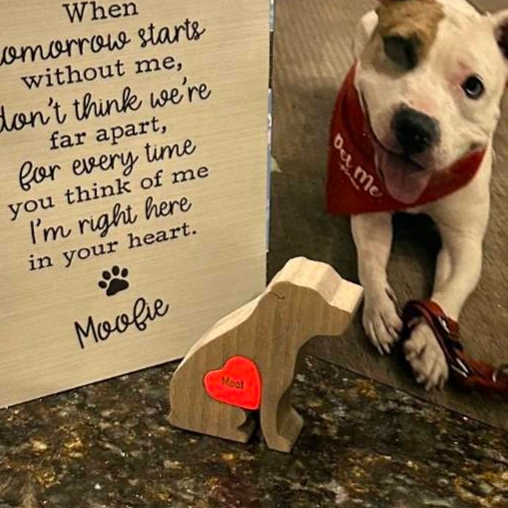 When
tomorrow starts
without me,
don't think we're
far apart,
for every time
you think of me
I'm right here
in your heart.
Moofie
Moof
Pet Me